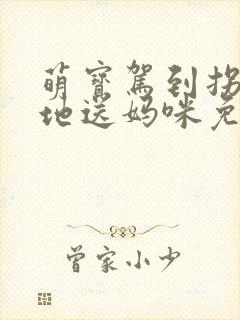 萌寶駕到拐
地送媽咪免
曾家小少